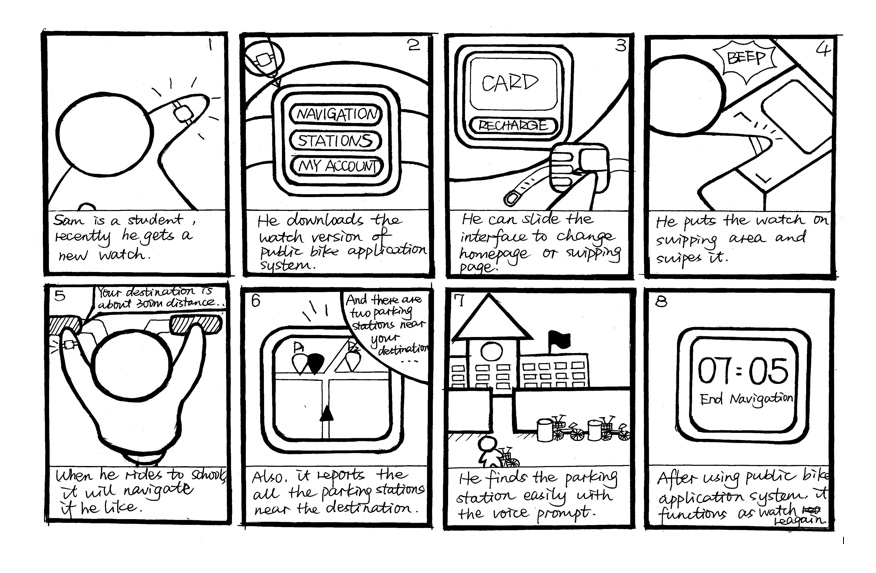 1
Sam is a student,
recently he gets a
new watch.
2
NAVIGATION
STATIONS
MY ACCOUNT
He downloads the
watch version of
public bike application
system.
3
CARD
RECHARGE
He can slide the
interface to change
homepage or swipping
page.
4
BEEP
He puts the watch on
swipping area and
swipes it.
5
Your destination is
about 300m distance...
When he rides to school,
it will navigate
if he like.
6
And there are
two parking
stations near
your
destination
...
P1
P2
Also, it reports the
all the parking stations
near the destination.
7
He finds the parking
station easily with
the voice prompt.
8
07:05
End Navigation
After using public bike
application system, it
functions as watch
reagain.
1